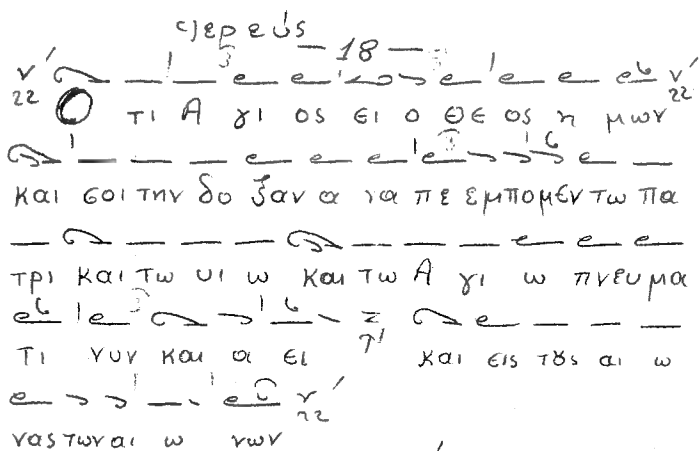 ς)ερεύς
— 18 —
Ο τι Α γι ος ει ο Θε ος η μων
και σοι την δο ξαν α να πε εμπομεν τω πα
τρι και τω υι ω και τω Α γι ω πνευμα
τι νυν και α ει και εις τȣς αι ω
νας των αι ω νων